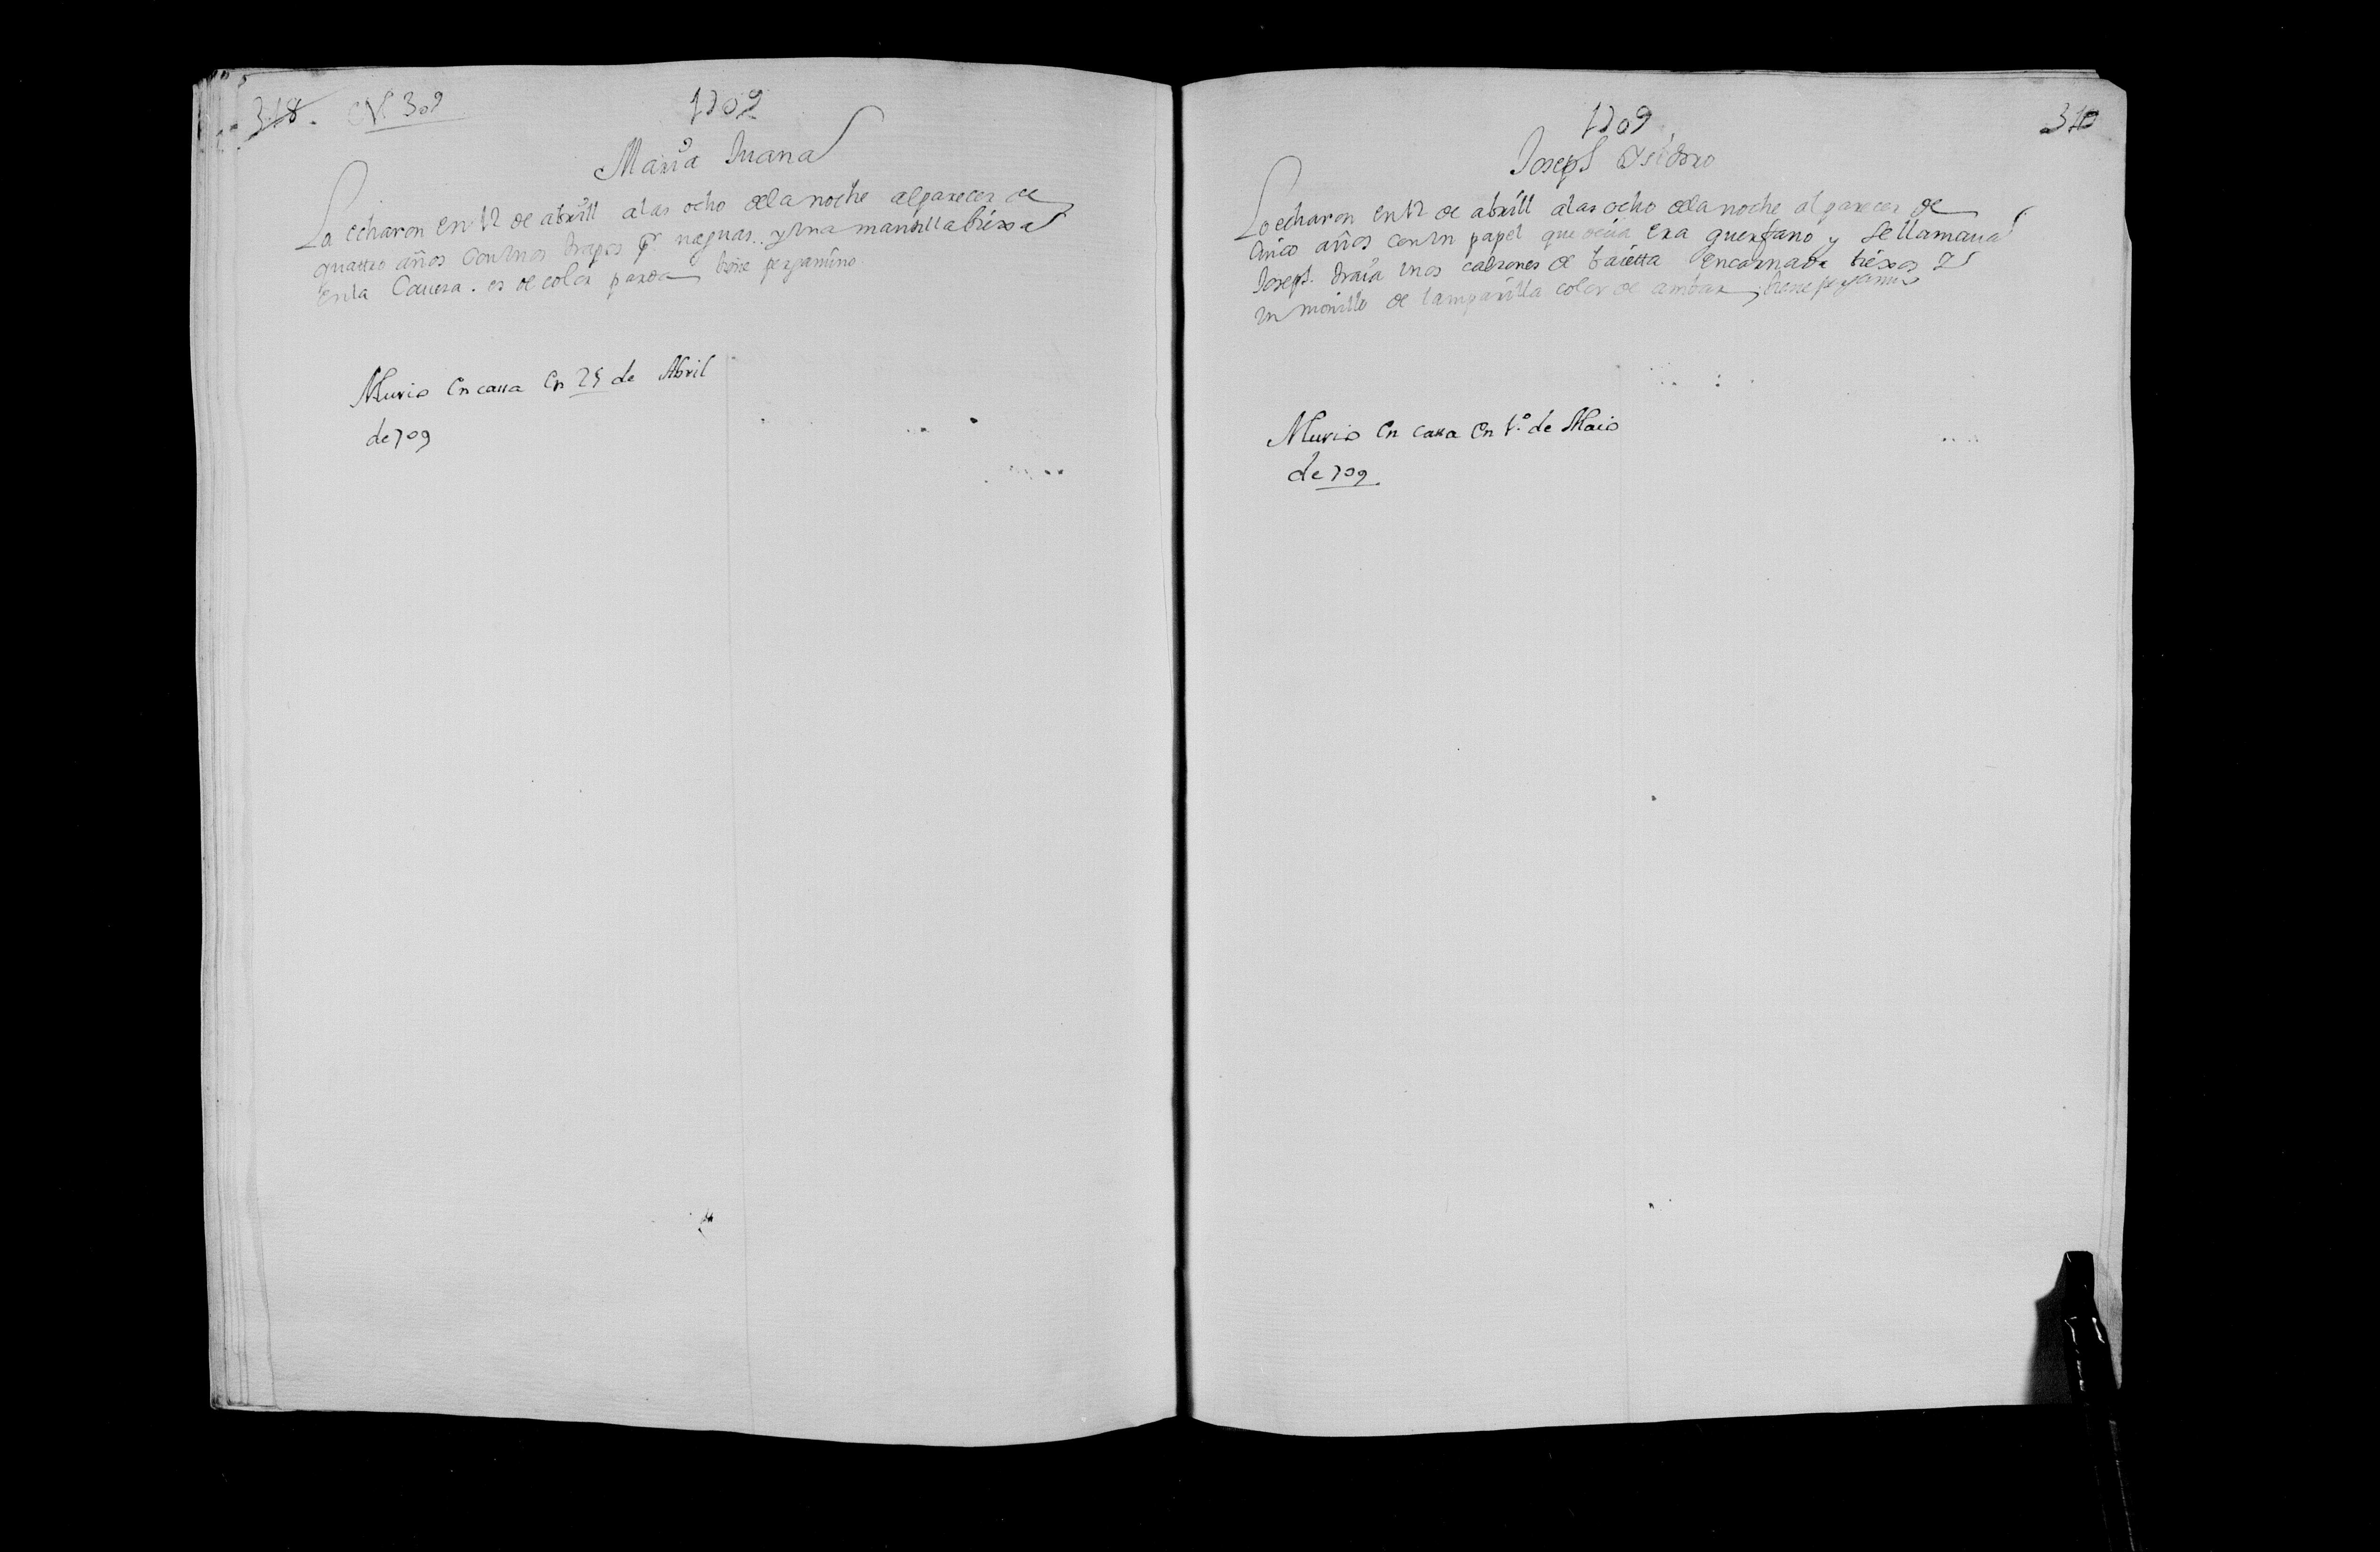 318. N. 309
1709
Maria Juana
La echaron en 12 de abrill alas ocho dela noche alparecer de
quattro años con unos trapos pr. naguas.. y una mantilla biexa
en la Caueza. es de color parda tiene pergamino.
Murio En cassa En 25 de Abril
de 709
1709
310
Joseph Ysidro
Lo echaron en 12 de abrill alas ocho dela noche al parecer de
cinco años con un papel que decia Era guerfano y se llamaua
Joseph. traia unos calzones de baietta encarnada biexos y
un monillo de lamparilla color de ambar, tiene pergamino
Murio En cassa En 1.º de Maio
de 709.